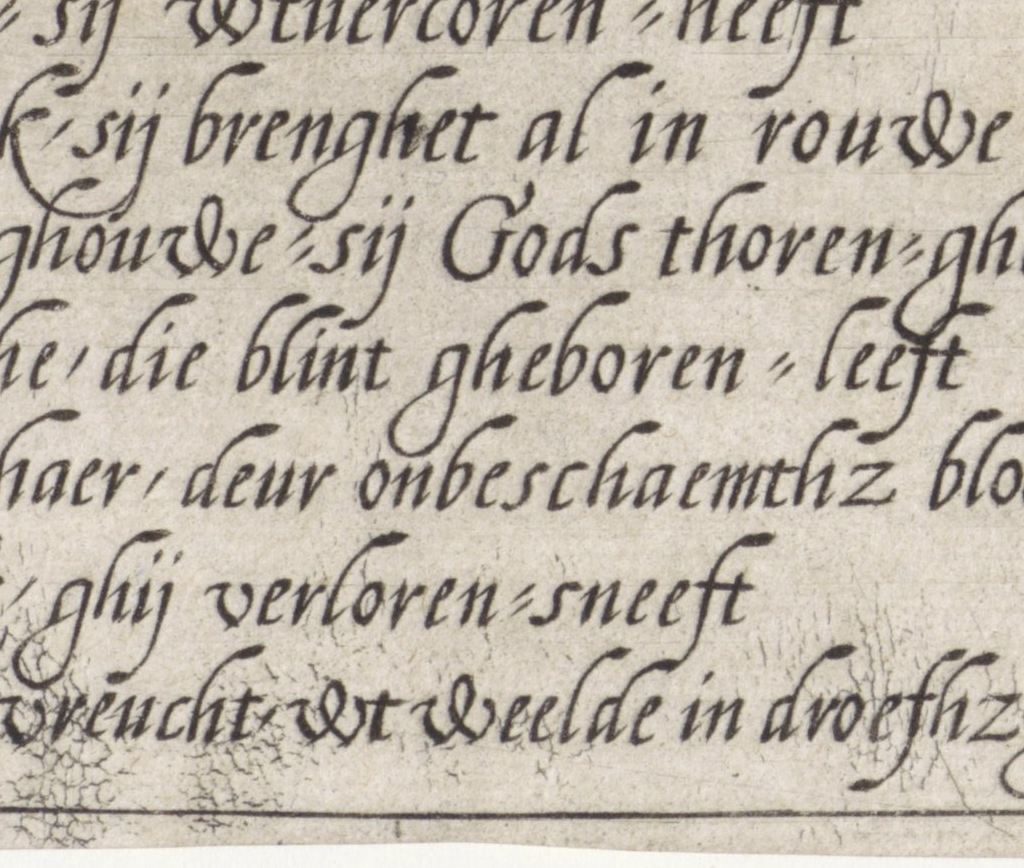 sij wtuercoren ⸗ heeft
sij brenghet al in rouwe
ghouwe ⸗ sij Gods thoren ⸗ gh
he / die blint gheboren ⸗ leeft
haer / deur onbeschaemthz blo
/ ghij verloren ⸗ sneeft
vreucht / wt weelde in droefhz